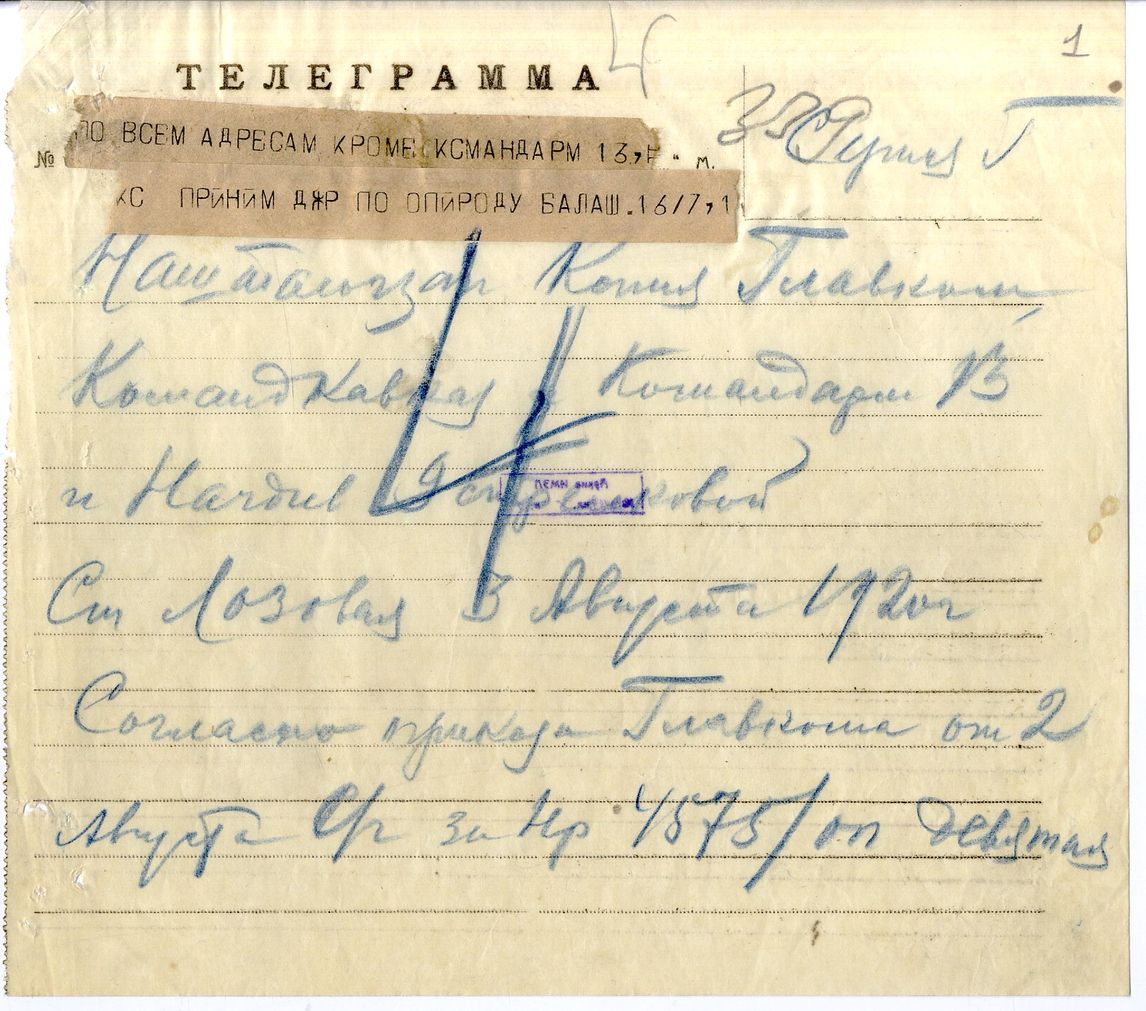 1
ТЕЛЕГРАММА
ПО ВСЕМ АДРЕСАМ КРОМЕ КСМАНДАРМ 13,
№ м.
КС ПРИНИМ ДЖР ПО ОПИРОДУ БАЛАШ.16/7,1
Наштаюгзап Копия Главком
Командкавказ Командарм 13
и Начдив 9 стрелковой
Ст Лозовая 3 Августа 1920г
Согласно приказа Главкома от 2
Августа С/г за Нр 4575/оп девятая